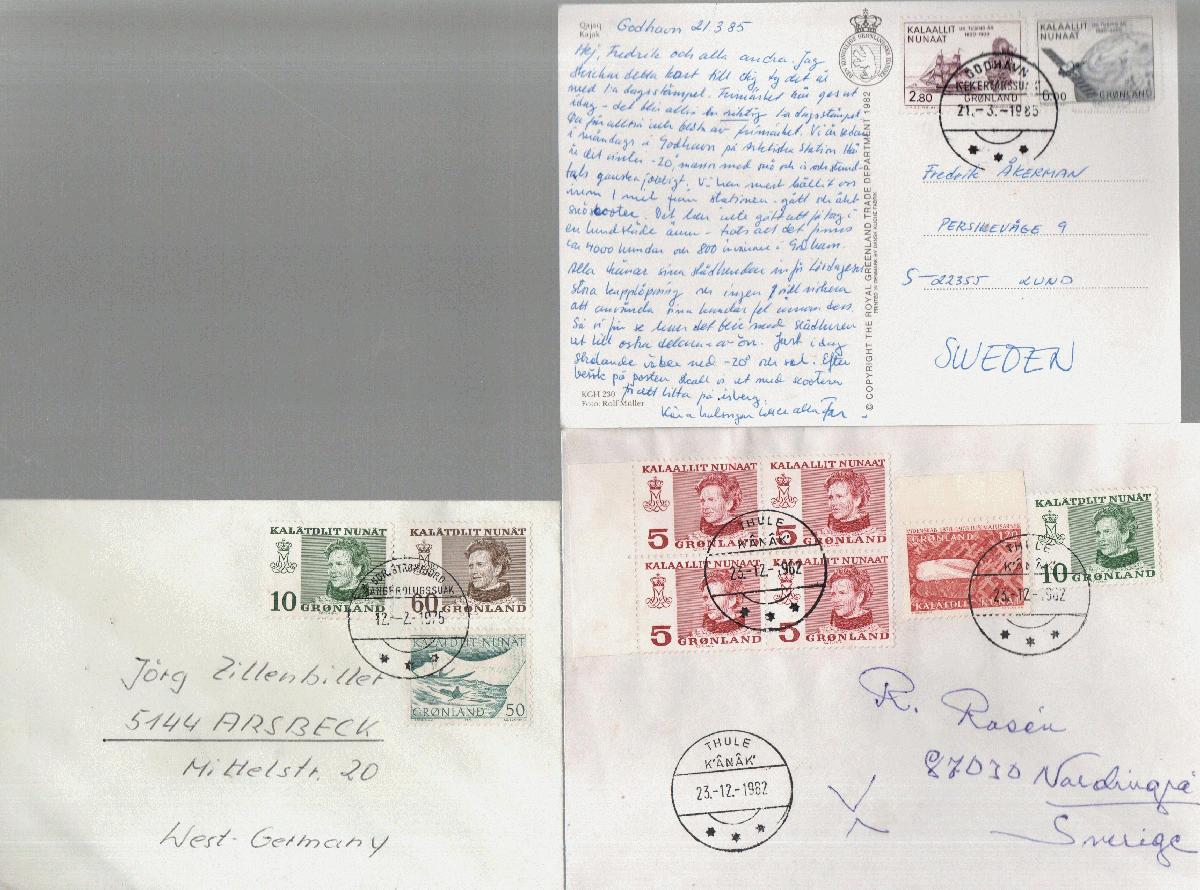 Qajaq
Kajak
Godhavn 21 3 85
Hej, Fredrik och alla andra. Jag
skickar detta kort till dig ty det är
med 1:a dagsstämpel. Frimärket kom ges ut
idag - det blir alltså en riktig 1:a dagsstämpel
i måndags i Godhavn på Arktiska Station Här
är det vinter -20°, massor med snö och
tals ganska jobbigt. Vi har mest hållit oss
inom 1 mil från stationen - gått och åkt
snöscooter. Det har inte gått att få tag i
en hundsläde ännu - trots att det finns
ca 4000 hundar och 800 invånare i Godhavn.
Alla tränar sina slädhundar inför lördagens
stora kapplöpning och ingen vill riskera
att använda sina hundar
Så vi får se hur det blir med slädturen
ut till östra delarna av ön. Just i dag
strålande väder med -20° och sol. Efter
besök på posten skall vi ut med scootern
för att titta på isberg.
Kära hälsningar till er alla Far
KGH 230
Foto: Rolf Müller
© COPYRIGHT THE ROYAL GREENLAND TRADE DEPARTMENT 1982
KALAALLIT
NUNAAT
2.80
KALAALLIT
NUNAAT
6.00
GRØNLAND
GODHAVN
KEKERTARSSUAK
GRØNLAND
21.-3.-1985
Fredrik ÅKERMAN
PERSIKEVÄGE 9
S-22355 LUND
SWEDEN
KALÂTDLIT NUNÂT
10 GRØNLAND
KALÂTDLIT NUNÂT
60 GRØNLAND
SDR. STRØMFJORD
12.-2.-1975
KALÂTDLIT NUNÂT
GRØNLAND 50
Jörg Zillenbiller
5144 ARSBECK
Mittelstr. 20
West-Germany
KALAALLIT NUNAAT
5 GRØNLAND
KALAALLIT NUNAAT
5 GRØNLAND
KALAALLIT NUNAAT
5 GRØNLAND
KALAALLIT NUNAAT
5 GRØNLAND
THULE
K'ÂNÂK'
23.-12.-1982
120
KALÂTDLIT NUNÂT
10 GRØNLAND
THULE
K'ÂNÂK'
23.-12.-1982
R. Rosén
87030 Nordingrå
Sverige
THULE
K'ÂNÂK'
23.-12.-1982